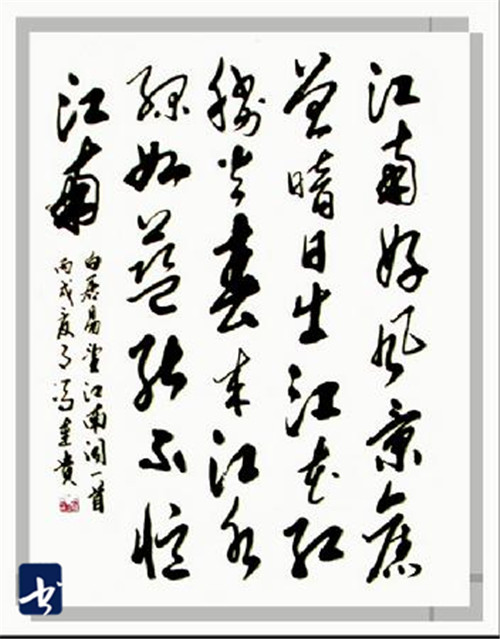 江南好风景舊
曾暗日出江花红
勝火春来江水
绿如蓝能不忆
江南
白居易望江南词一首
丙戌夏月冯貴
书